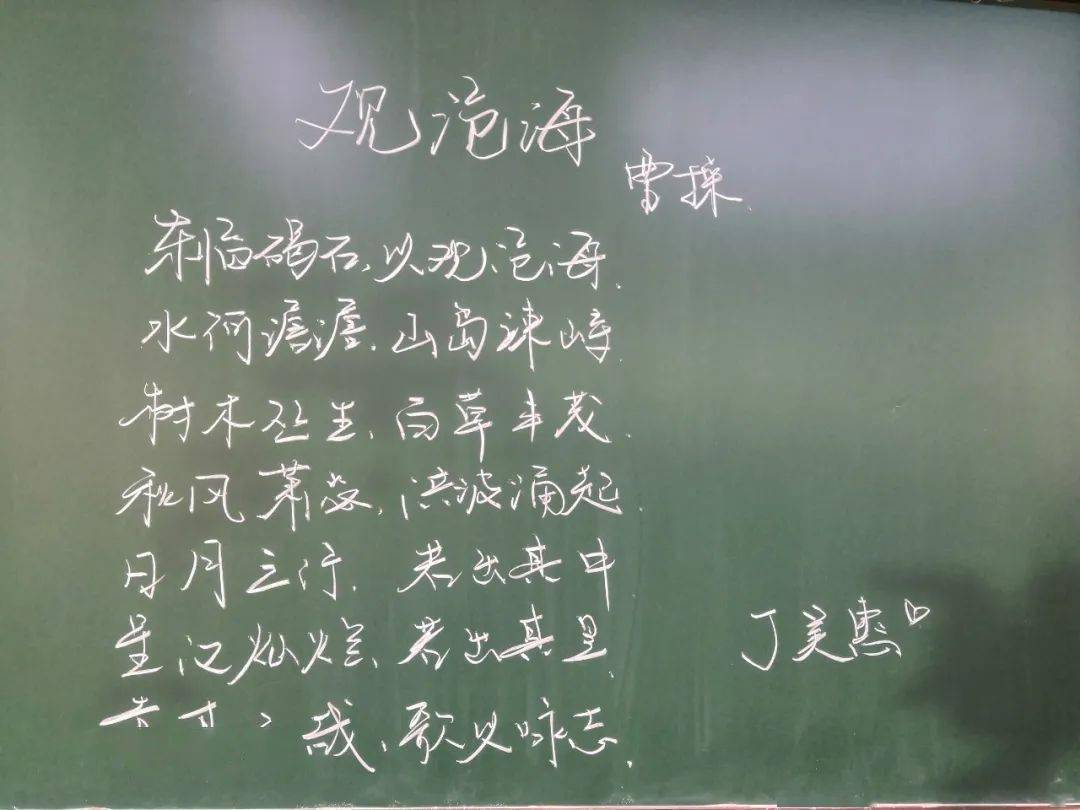 观沧海
曹操.
东临碣石,以观沧海.
水何澹澹,山岛竦峙.
树木丛生,百草丰茂.
秋风萧瑟,洪波涌起.
日月之行.若出其中
星汉灿烂,若出其里.
哉,歌以咏志.
丁美惠